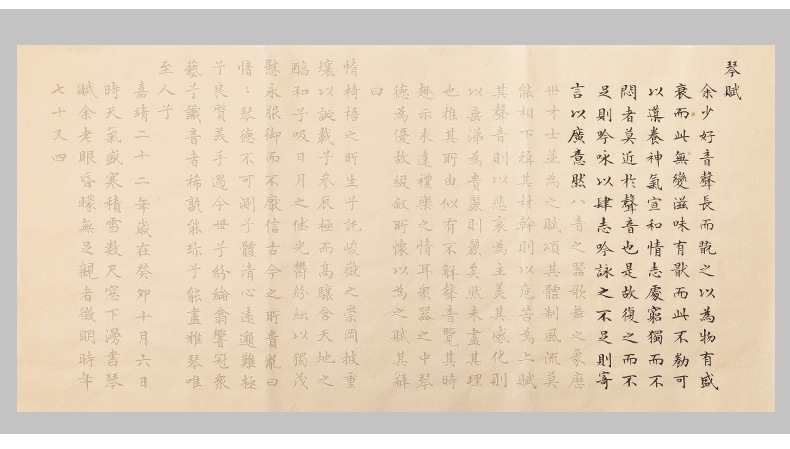 琴賦
余少好音聲長而翫之以為物有盛
衰而此無變滋味有猒而此不勌可
以導養神氣宣和情志處窮獨而不
悶者莫近於聲音也是故復之而不
足則吟咏以肆志吟詠之不足則寄
言以廣意然八音之器歌舞之象歷
世才士並為之賦頌其體制風流莫
能相下稱其材幹則以危苦為上賦
其聲音則以悲哀為主美其感化則
以垂涕為貴麗則麗矣然未盡其理
也推其所由似有不解聲音覽其時
趣亦未達禮樂之情耳衆器之中琴
德為優故綴叙所懷以為之賦其辭
曰
情椅梧之所生子託峻嶽之崇岡披重
壤以誕載子參辰極而高驤含天地之
醕和子吸日月之休光鬱紛紜以獨茂
慰永服御而不厭信古今之所貴亂曰
愔〻琴德不可測子體清心遠邈難極
子良質美手遇今世子紛綸翕響冠衆
藝子識音者稀孰能珍子能盡雅琴唯
至人子
嘉靖二十二年歲在癸卯十月六日
時天氣盛寒積雪數尺窓下漫書琴
賦余老眼昏矇無足觀者徵明時年
七十又四